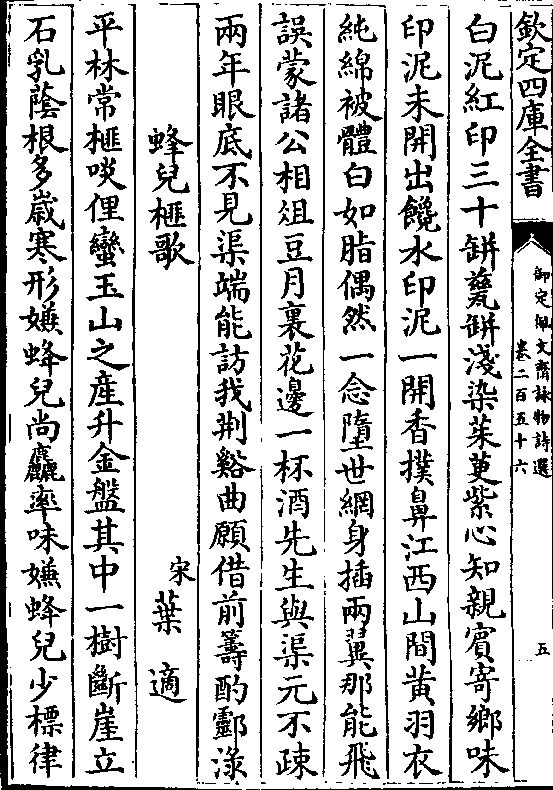 欽定四庫全書
御定佩文齋詠物詩選
卷二百五十六
五
白泥紅印三十缾甆缾淺染茱萸紫心知親賓寄鄉味
印泥未開出饞水印泥一開香撲鼻江西山間黄羽衣
純綿被體白如脂偶然一念墮世網身插兩翼那能飛
誤蒙諸公相俎豆月裏花邊一杯酒先生與渠元不疎
兩年眼底不見渠端能訪我荆谿曲願借前籌酌酃渌
蜂兒榧歌
宋葉適
平林常榧啖俚蠻玉山之産升金盤其中一樹斷崖立
石乳蔭根多歲寒形嫵蜂兒尚麤率味嫵蜂兒少標律